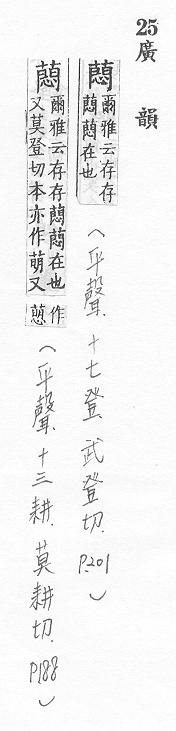 25廣韻
蕄 爾雅云存存
蕄蕄在也
(平聲.十七登.武登切.P.201)
蕄 爾雅云存存蕄蕄在也
又莫登切本亦作萌又作
(平聲.十三耕.莫耕切.P188)